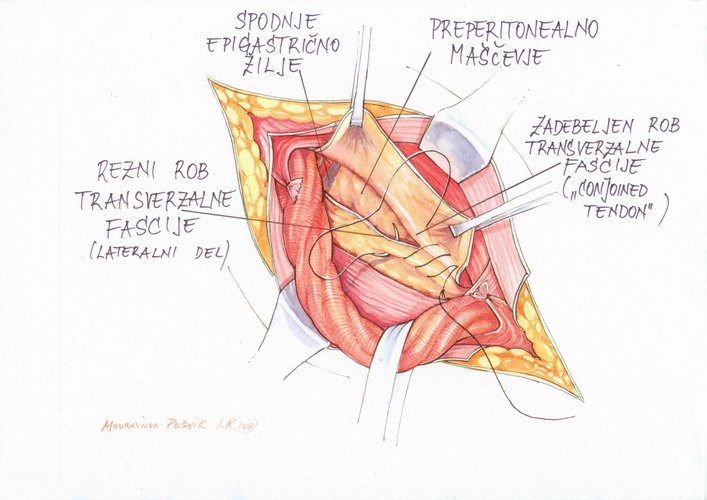 SPODNJE
EPIGASTRIČNO
ŽILJE
PREPERITONEALNO
MAŠČEVJE
ZADEBELJEN ROB
TRANSVERZALNE
FASCIJE
(„CONJOINED
TENDON")
REZNI ROB
TRANSVERZALNE
FASCIJE
(LATERALNI DEL)